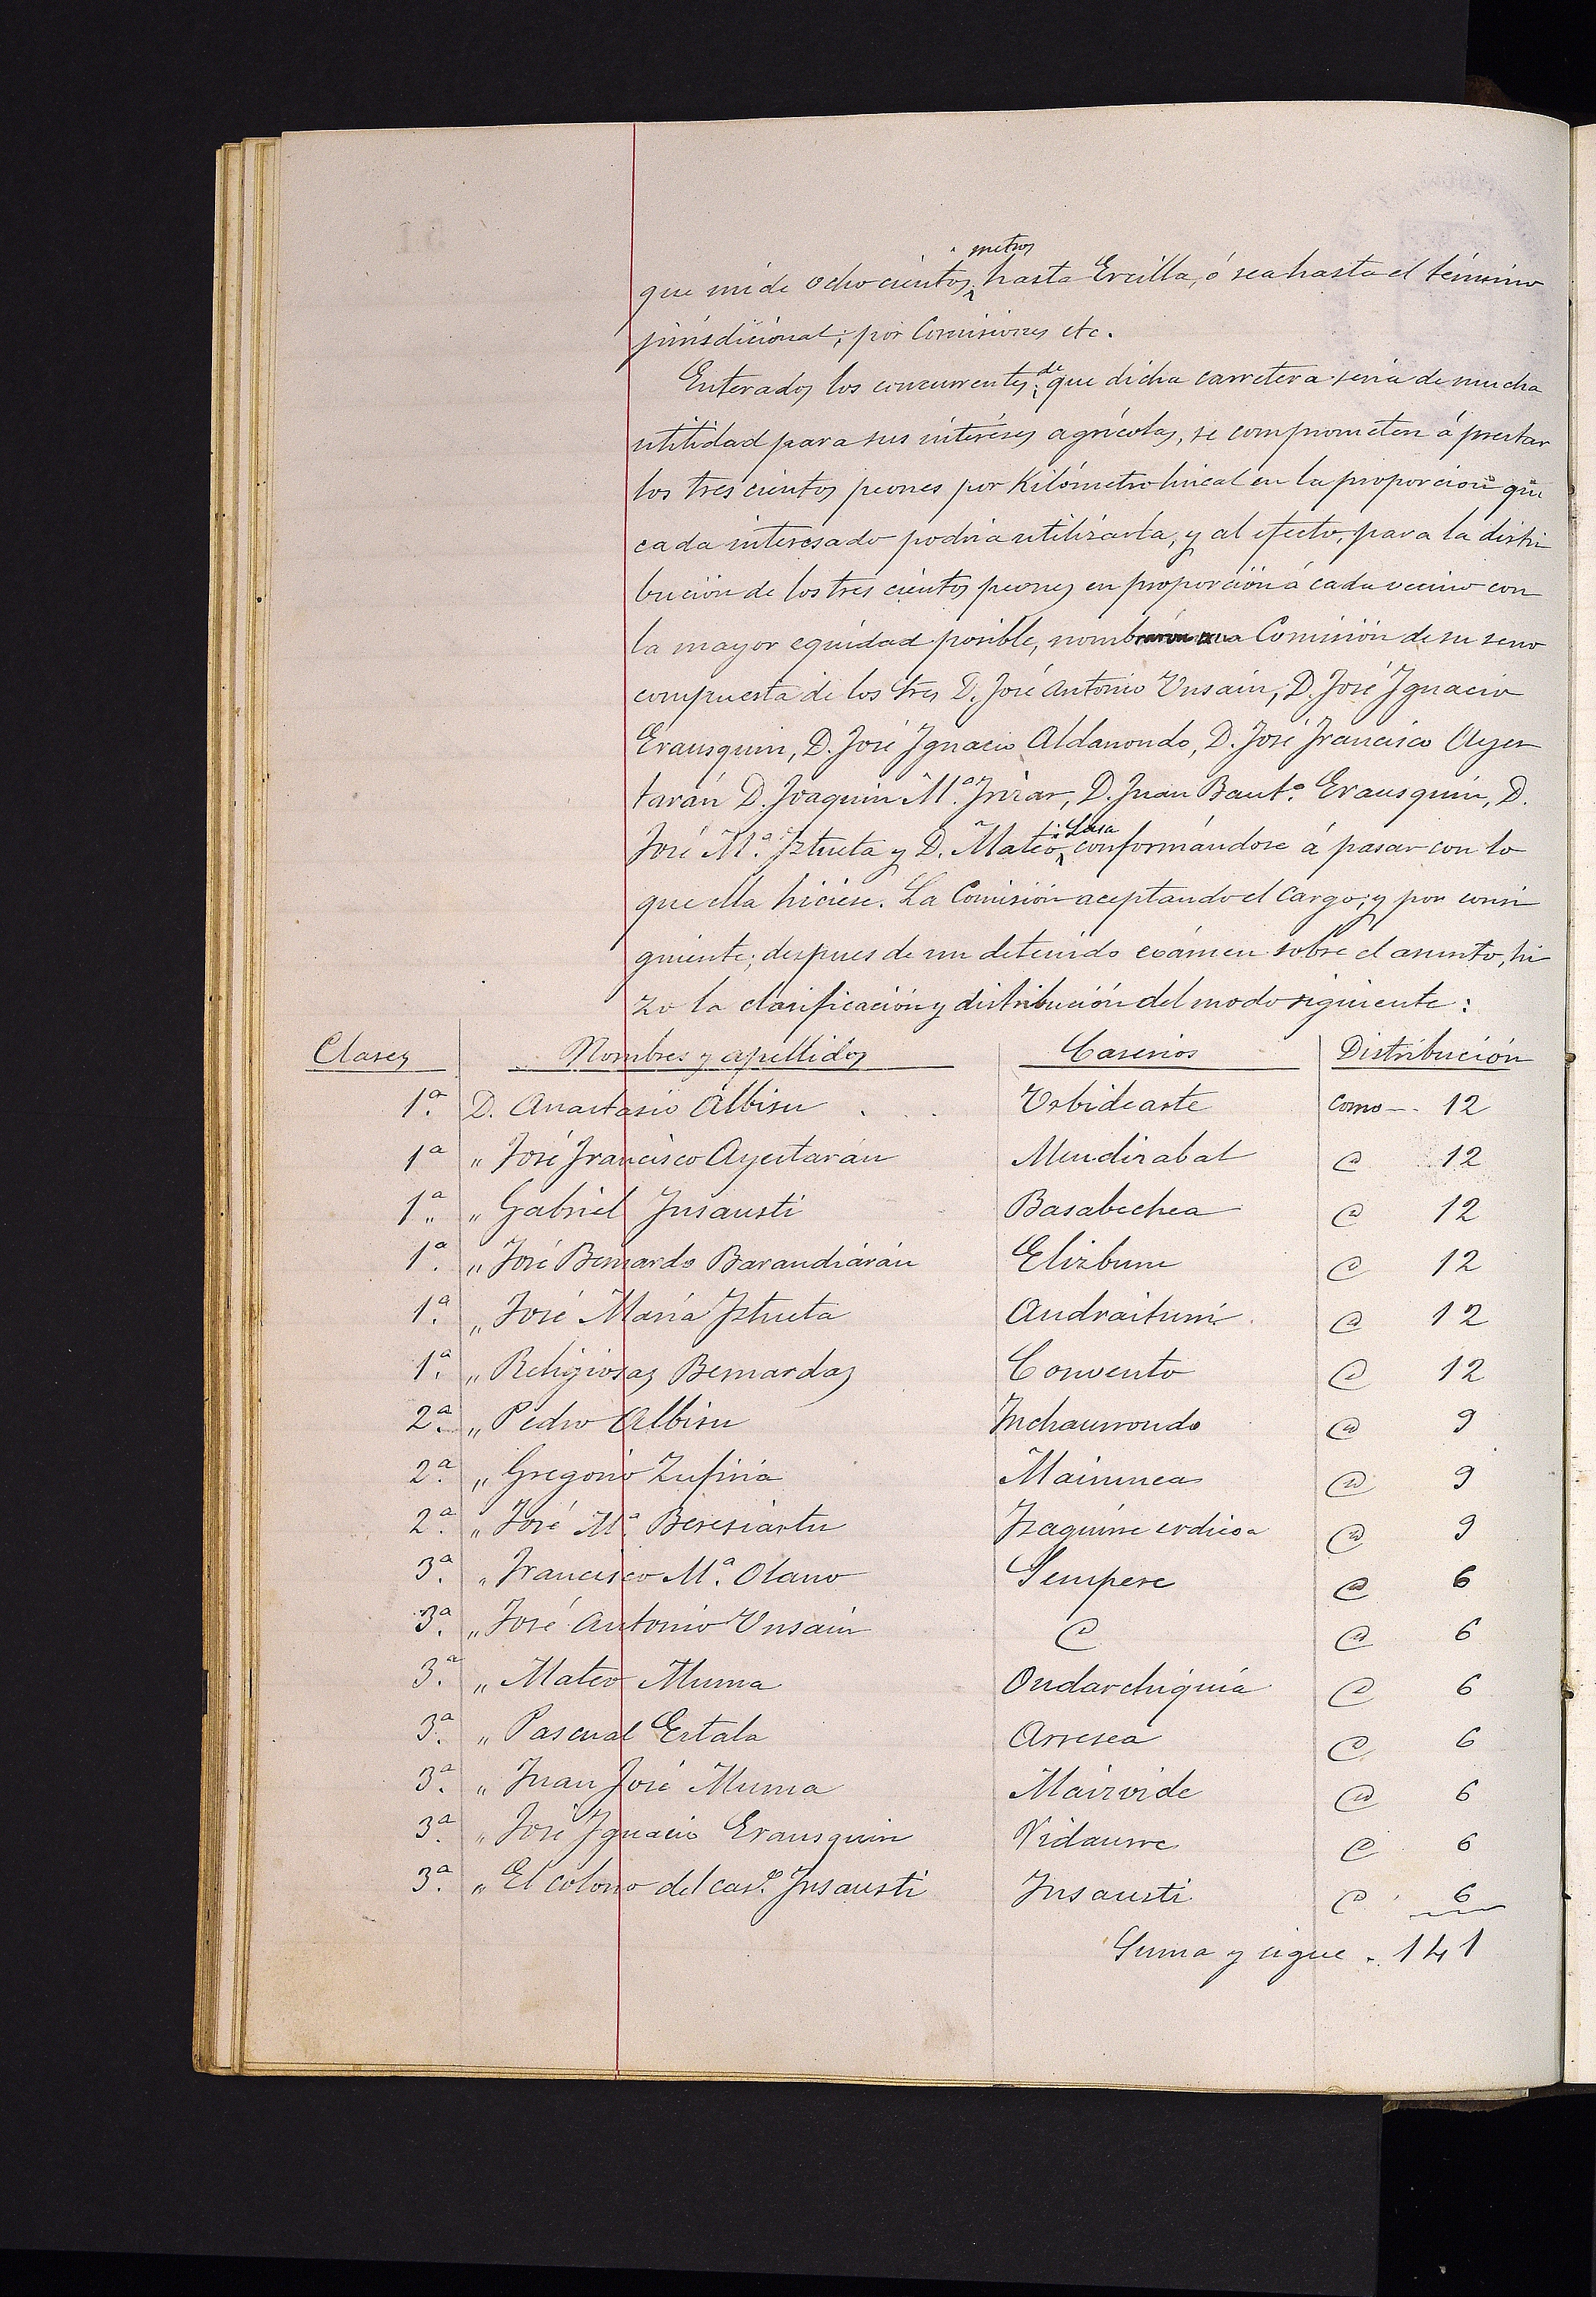 que mide ochocientos metros hasta Ercilla, ó sea hasta el término
jurisdicional; por Comisiones etc.
Enterados los concurrentes de que dicha carretera seria de mucha
utilidad para sus intéreses agrícolas, se comprometen á prestar
los tres cientos peones por Kilómetro lineal en la proporción que
cada interesado podria utilizarla, y al efecto, para la distri
bución de los tres cientos peones en proporción á cada vecino con
la mayor equidad posible, nombraron una Comisión de su seno
compuesta de los tres D. José Antonio Unsain, D. José Ignacio
Erausquin, D. José Ignacio Aldanondo, D. José Francisco Ayes
tarán D. Joaquin M.ª Irizar, D. Juan Baut.ª Erausquin, D.
José M.ª Iztueta y D. Mateo Lasa conformándose á pasar con lo
que ella hiciese. La Comisión aceptando el Cargo; y por consi
guiente; despues de un detenido exámen sobre el asunto, hi
zo la clasificación y distribución del modo siguiente:
Clases Nombres y apellidos Caserios Distribución
1.ª D. Anastasio Albisu . . . Urbidearte como - 12
1ª " José Francisco Ayestarán Mendizabal @ 12
1.ª " Gabriel Insausti Basabechea @ 12
1.ª " José Bernardo Barandiárán Elizburu @ 12
1.ª " José María Iztueta Andraituni @ 12
1.ª " Religiosas Bernardas Convento @ 12
2.ª " Pedro Albisu Inchaurrondo @ 9
2.ª " Gregorio Zufiria @ 9
2.ª " José M.ª Beresiartu Izaguirre erdicoa @ 9
3.ª " Francisco M.ª Olano Sempere @ 6
3.ª " José Antonio Unsain @ @ 6
3.ª " Mateo Murua Ondarchiquia @ 6
3.ª " Pascual Estala Arresea @ 6
3.ª " Juan José Murua @ 6
3.ª " José Ignacio Erausquin Vidaurre @ 6
3.ª " El colono del cas.º Insausti Insausti @ 6
Suma y sigue . 141